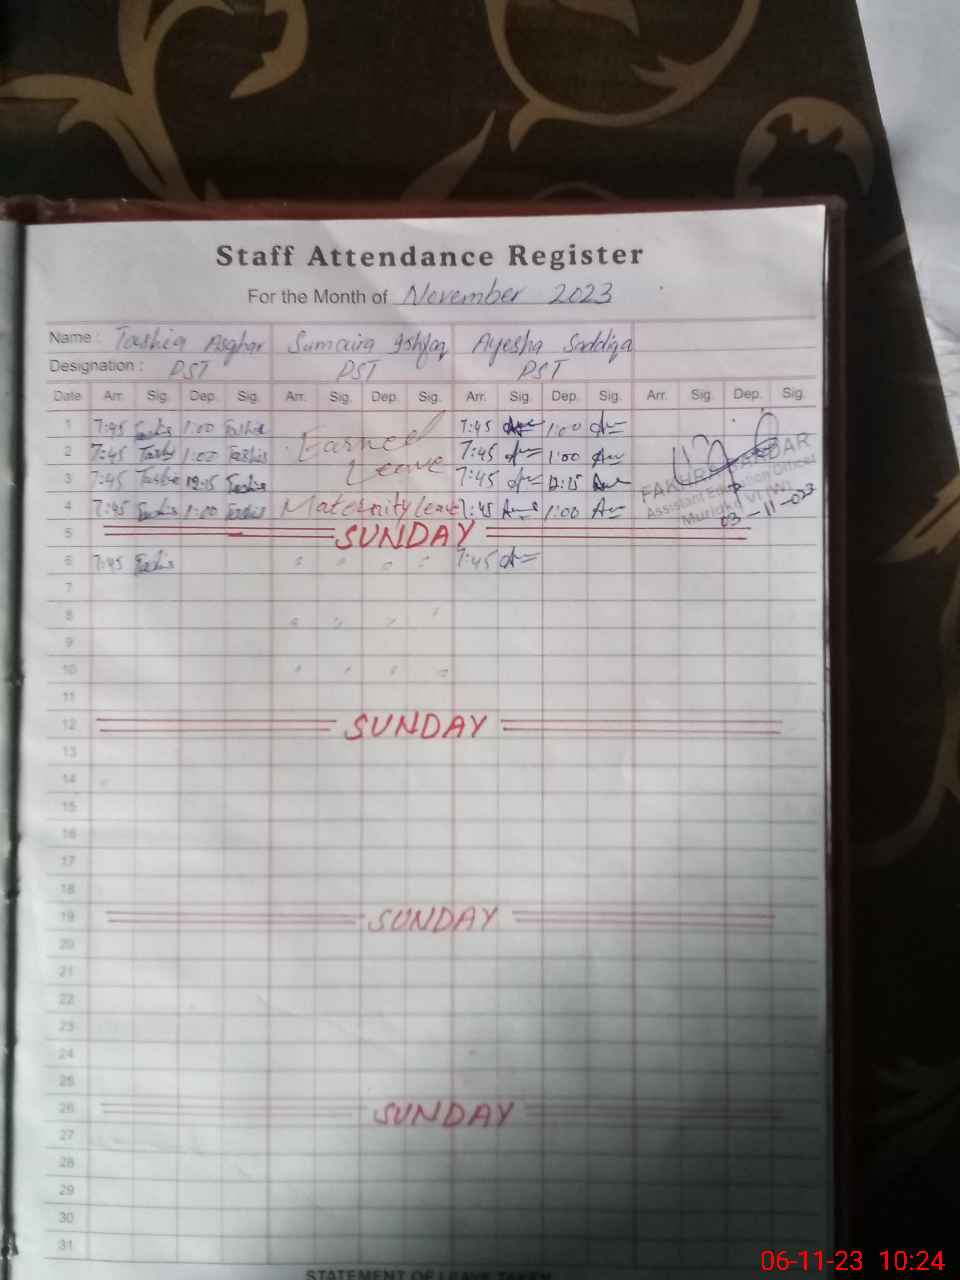 Staff Attendance Register
For the Month of November 2023
Name : Tashia Asghar Sumaira Ishfaq Ayesha Saddiqa
Designation : PST PST PST
Date Arr. Sig. Dep. Sig. Arr. Sig. Dep. Sig. Arr. Sig. Dep. Sig. Arr. Sig. Dep. Sig.
1 7:45 1:00 Earned 7:45 1:00
2 7:45 1:00 Leave 7:45 1:00
3 7:45 12:15 7:45 12:15
4 7:45 1:00 Maternity Leave 7:45 1:00
Assistant Education Officer
Muridke
03-11-023
5 SUNDAY
6 7:45 7:45
7
8
9
10
11
12 SUNDAY
13
14
15
16
17
18
19 SUNDAY
20
21
22
23
24
25
26 SUNDAY
27
28
29
30
31
STATEMENT OF LEAVE TAKEN
06-11-23 10:24